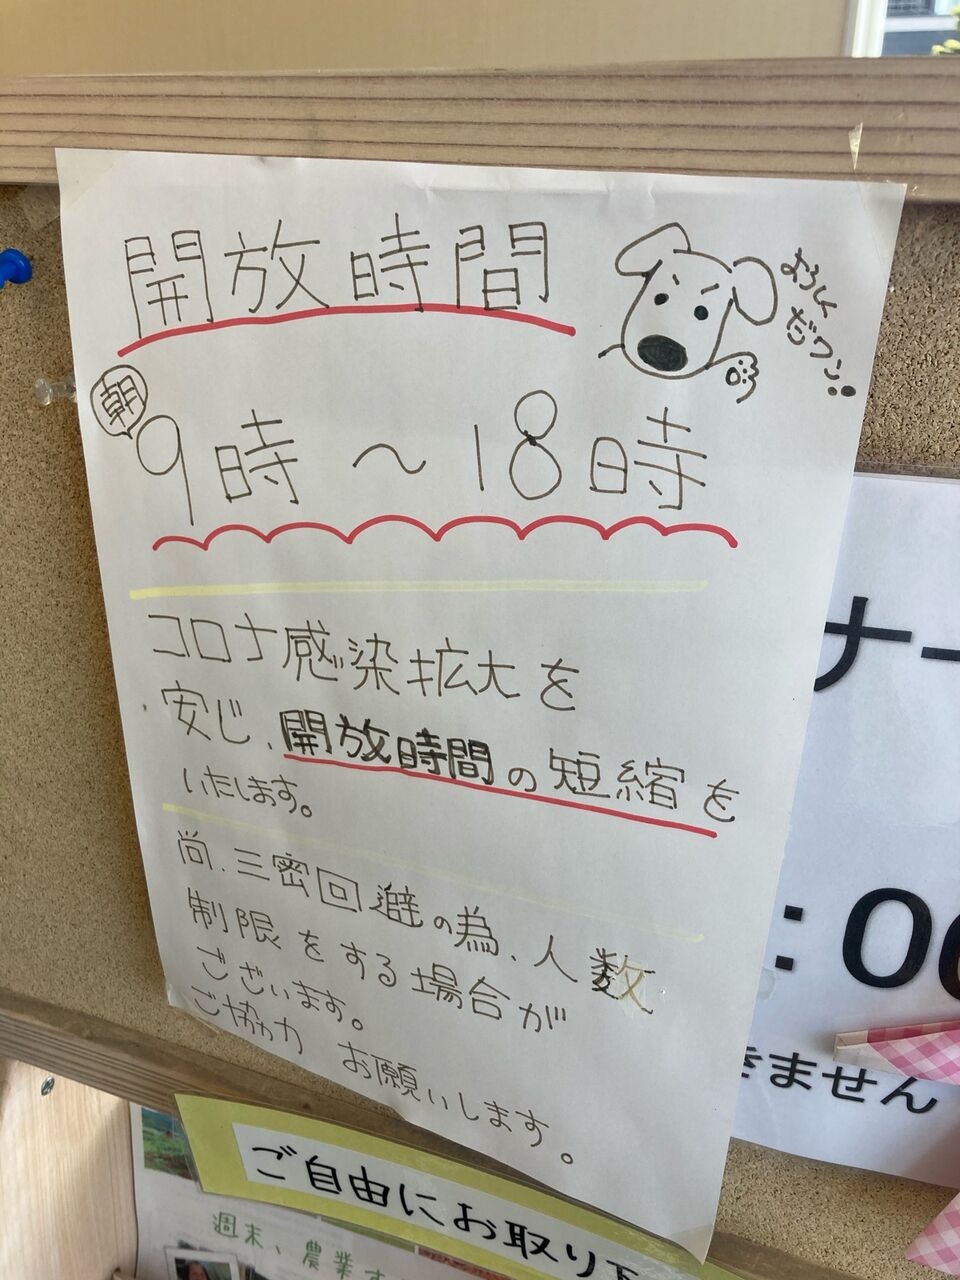 開放時間
よろしく
だワン!!
朝
9時～18時
コロナ感染拡大を
安じ、開放時間の短縮を
いたします。
尚、三密回避の為、人数
制限をする場合が
ございます。
ご協力 お願いします。
ナー
:00
きません
ご自由にお取り下
週末、農業す